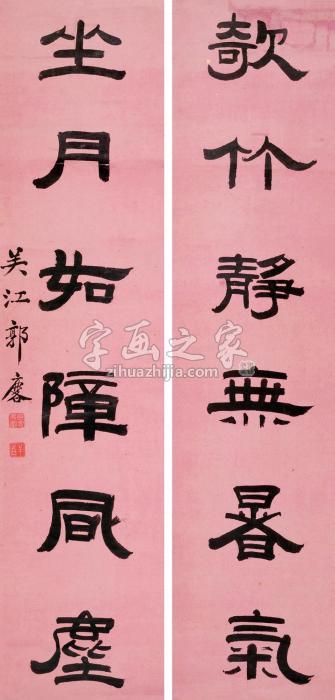 欹竹靜無暑氣
坐月如障凬塵
吴江郭麐
字画之家
zihuazhijia.com